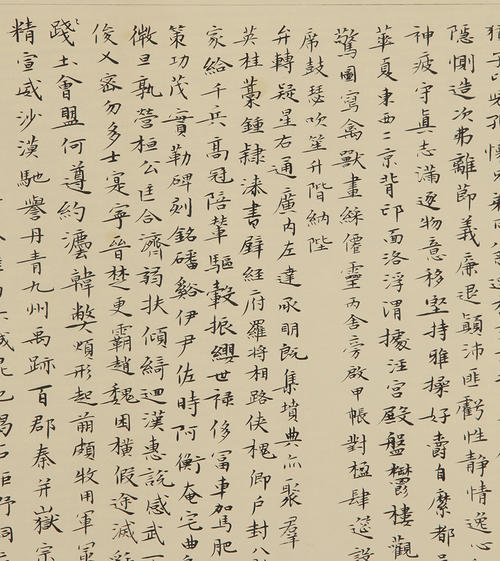 隱惻造次弗離節義廉退顛沛匪虧性靜情逸心
神疲守真志滿逐物意移堅持雅操好爵自縻都
華夏東西二京背邙面洛浮渭據涇宮殿盤鬱樓觀
驚圖寫禽獸畫綵僊靈丙舍旁啟甲帳對楹肆筵設
席鼓瑟吹笙升階納陛
弁轉疑星右通廣內左達承明既集墳典亦聚群
英杜藁鍾隸漆書壁經府羅將相路俠槐卿戶封八
家給千兵高冠陪輦驅轂振纓世祿侈富車駕肥
策功茂實勒碑刻銘磻谿伊尹佐時阿衡奄宅曲
微旦孰營桓公匡合濟弱扶傾綺迴漢惠說感武
俊乂密勿多士寔寧晉楚更霸趙魏困橫假途滅
踐土會盟何遵約灋韓弊煩形起翦頗牧用軍
精宣威沙漠馳譽丹青九州禹跡百郡秦并嶽宗